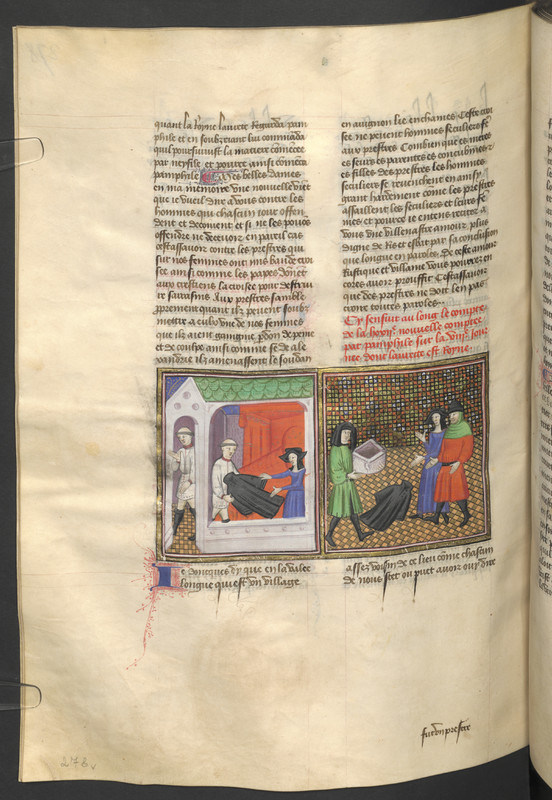 quant la Royne laurete Regarda pam
phile et en soubriant lui comanda
quil poursuiuist la matiere comencee
par neyfile et poutre ainsi comença
pamphile Tresbelles dames
en ma memoire vne nouvelle vient
que ie vueil dire a vous contre les
hommes qui chascun iour offen
dent et decoiuent et si ne les pouons
offendre ne decevoir en pareil cas
cestassauoir contre les prestres qui
sur noz femmes ont mis bande croi
see ainsi comme les papes donnent
aux crestiens la croisee pour destrui
re sarrasins Aux prestres samble
proprement quant ilz peuent soubz
mettre a culz vne de nos femmes
que ilz aient gaingnie pardon de peine
et de coulpe ainsi comme se de ale
xandrie ilz amenassent le souldan
en auignon lie enchaines Ceste croi
see ne peuent hommes seculiers fe
aux prestres Combien que es meres
es seurs es parentes es concubines
es filles des prestres les hommes
seculiers se reuenchent en ausy
grant hardement come les prestres
assaillent les seculiers et leurs fe
mes et pource ie entens retraire a
vous vne villenastre amour plus
digne de Ris et esbat par sa conclusion
que longue en paroles De ceste amour
Rustique et villaine vous pourrez en
cores auoir prouffit Cestassauoir
que des prestres ne doit len pas
croire toutes paroles
Cy sensuit au long le compte
de la &nbsp;nouvelle comptee
par pamphile sur la &nbsp;iour
nee dont laurete est Royne
Ie doncques dy que en la valee
longue qui est vn village
assez voisin de ce lieu comme chascun
de nous scet ou puet auoir ouy dire
fut vn prestre
273 v